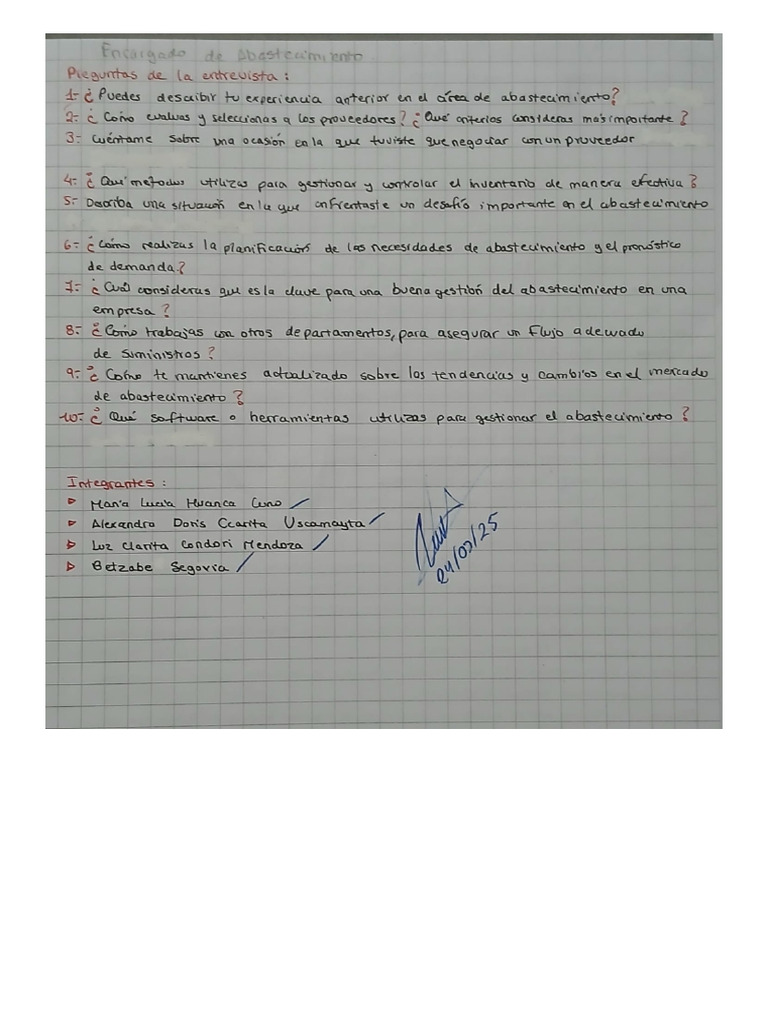 Encargado de Abastecimiento
Preguntas de la entrevista:
1- ¿Puedes describir tu experiencia anterior en el área de abastecimiento?
2- ¿Cómo evaluas y seleccionas a los proveedores? ¿Qué criterios consideras más importante?
3- Cuéntame sobre una ocasión en la que tuviste que negociar con un proveedor
4- ¿Qué métodos utilizas para gestionar y controlar el inventario de manera efectiva?
5- Describa una situación en la que enfrentaste un desafío importante en el abastecimiento
6- ¿Cómo realizas la planificación de las necesidades de abastecimiento y el pronóstico
de demanda?
7- ¿Cuál consideras que es la clave para una buena gestión del abastecimiento en una
empresa?
8- ¿Cómo trabajas con otros departamentos, para asegurar un flujo adecuado
de suministros?
9- ¿Cómo te mantienes actualizado sobre las tendencias y cambios en el mercado
de abastecimiento?
10- ¿Qué software o herramientas utilizas para gestionar el abastecimiento?
Integrantes:
Maria Lucia Huanca Cuno
Alexandra Doris Ccarita Uscamayta
Luz Clarita Condori Mendoza
Betzabe Segovia
24/03/25